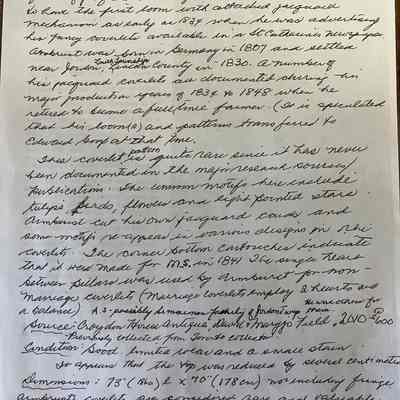 to have the first loom with attached jacquard
mechanism as early as 1834 when he was advertising
his fancy coverlets available in a St Catharines Newspaper.
Armbrust was born in Germany in 1807 and settled
near Jordan, Louth Township, Lincoln County in 1830. A number of
his jacquard coverlets are documented during his
major production years of 1834 to 1848 when he
retired to become a full time farmer. (It is speculated
that his loom(s) and patterns transferred to
Edward Graf at that time.
This coverlet pattern is quite rare since it has never
been documented in the major research sources/
Publications. The common motifs here include
tulips, birds, flowers and eight pointed stars.
Armbrust cut his own jacquard cards and
some motifs re-appear in various designs on the
coverlets. The corner bottom cartouches indicate
that it was made for in 1841. The single heart
between pillars was used by Armburst for non-
Marriage coverlets (Marriage coverlets employ 2 hearts and
a balance)
Source: Croydon House Antiques, Field, 600
Previously collected from Toronto collector
Condition: Good. limited wear and a small stain.
It appears that the top was reduced by several centimetres
Dimensions: 73" (186) L x 70" (178cm) not including fringe
Armbrust's coverlets are considered rare and valuable